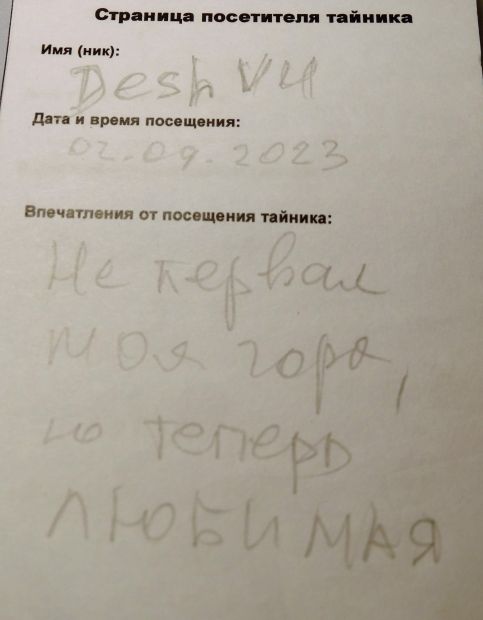 Страница посетителя тайника
Имя (ник):
Desh V4
Дата и время посещения:
02.09.2023
Впечатления от посещения тайника:
Не первая
моя гора,
но теперь
ЛЮБИМАЯ